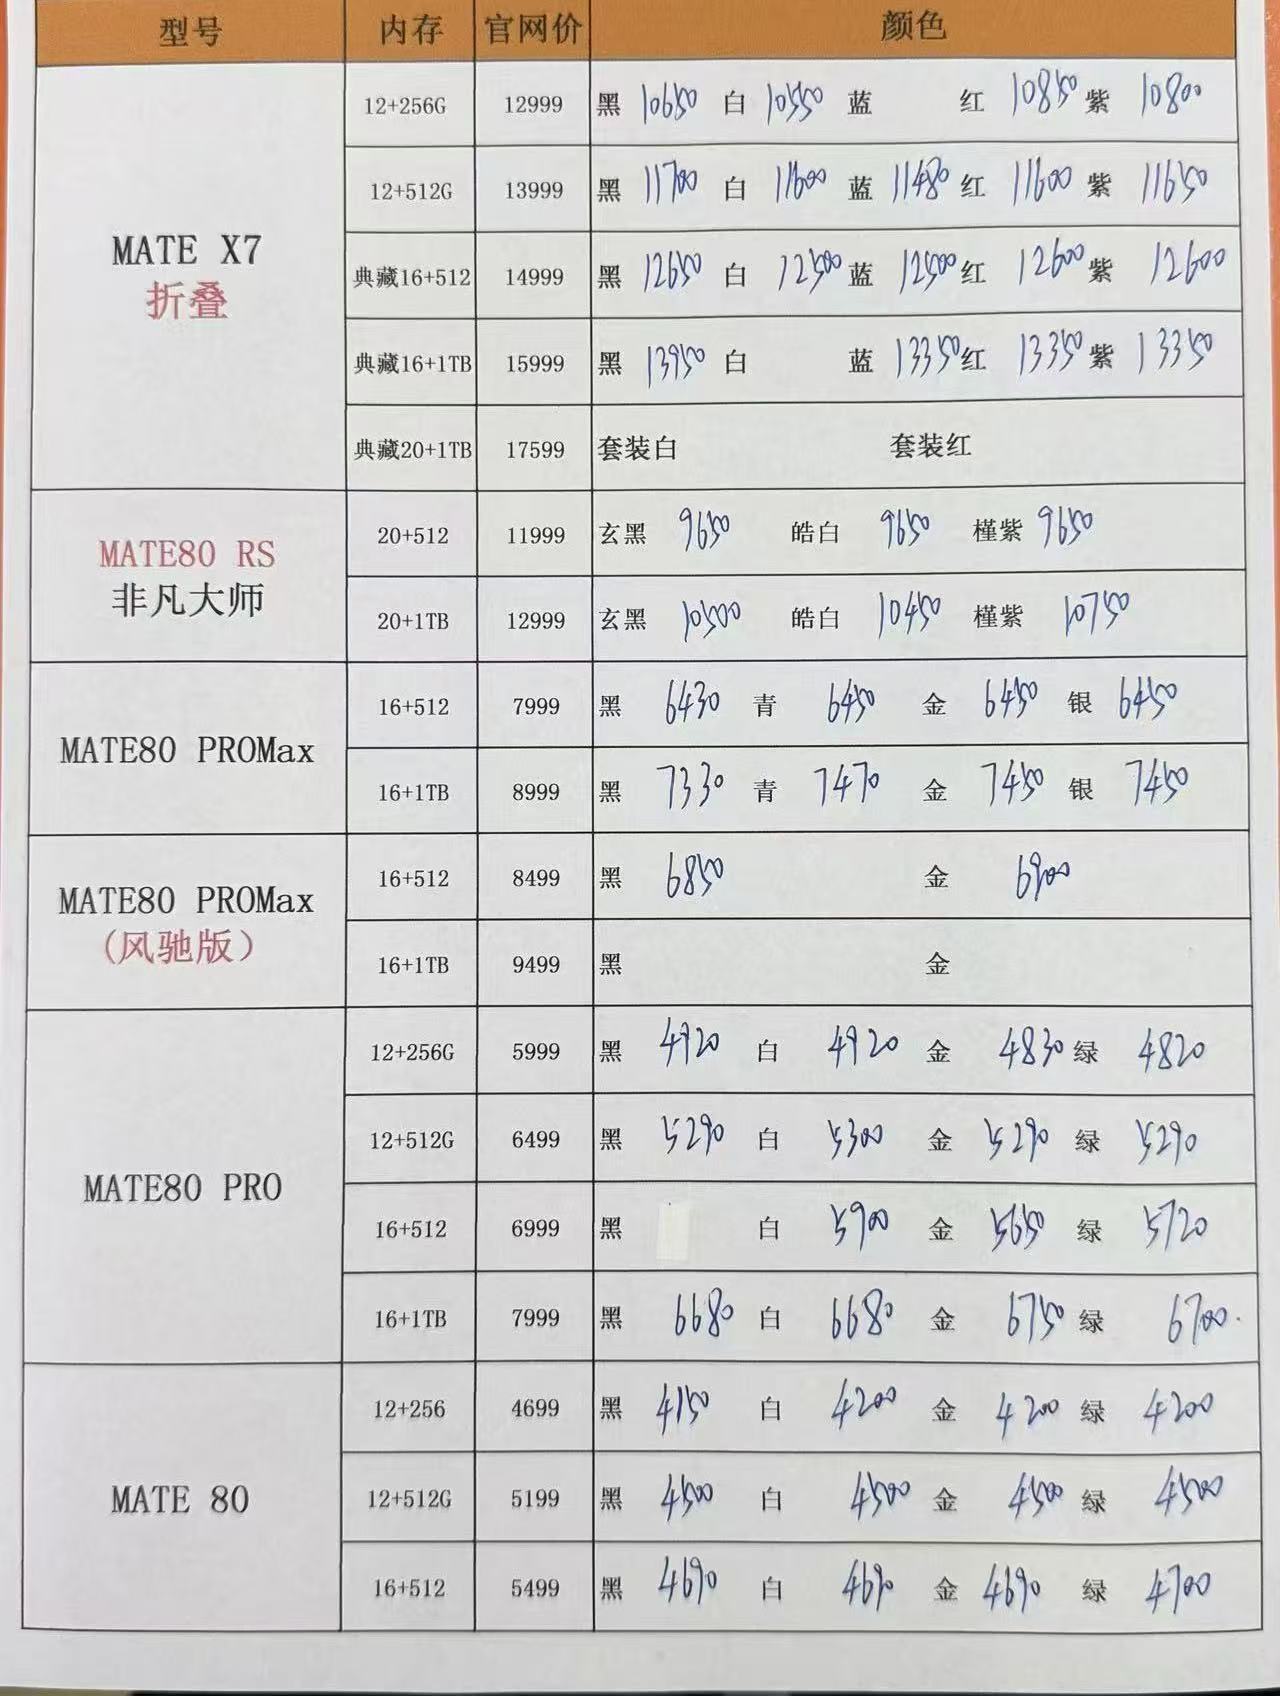 型号 内存 官网价 颜色
MATE X7
折叠
12+256G 12999 黑 10650 白 10550 蓝 红 10850 紫 10800
12+512G 13999 黑 11700 白 11600 蓝 11480 红 11600 紫 11650
典藏16+512 14999 黑 12650 白 12500 蓝 12500 红 12600 紫 12600
典藏16+1TB 15999 黑 13950 白 蓝 13350 红 13350 紫 13350
典藏20+1TB 17599 套装白 套装红
MATE80 RS
非凡大师
20+512 11999 玄黑 9650 皓白 9650 槿紫 9650
20+1TB 12999 玄黑 10500 皓白 10450 槿紫 10750
MATE80 PROMax
16+512 7999 黑 6430 青 6450 金 6450 银 6450
16+1TB 8999 黑 7330 青 7470 金 7450 银 7450
MATE80 PROMax
(风驰版)
16+512 8499 黑 6850 金 6900
16+1TB 9499 黑 金
MATE80 PRO
12+256G 5999 黑 4920 白 4920 金 4830 绿 4820
12+512G 6499 黑 5290 白 5300 金 5290 绿 5290
16+512 6999 黑 白 5900 金 5650 绿 5720
16+1TB 7999 黑 6680 白 6680 金 6750 绿 6700.
MATE 80
12+256 4699 黑 4150 白 4200 金 4200 绿 4200
12+512G 5199 黑 4500 白 4500 金 4500 绿 4500
16+512 5499 黑 4690 白 4690 金 4690 绿 4700